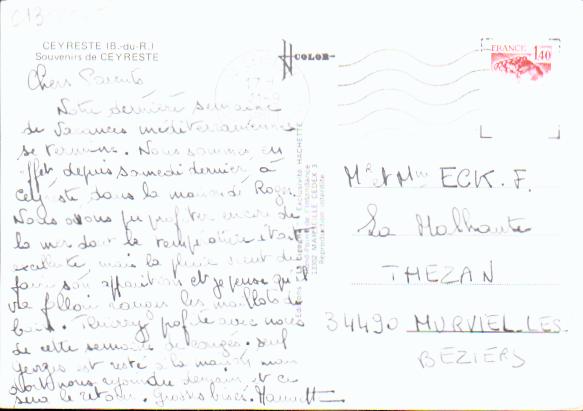 CEYRESTE (B.-du-R.)
Souvenirs de CEYRESTE
COLOR
FRANCE 1,40
Chers Parents
Notre dernière semaine
de vacances méditerranéennes
se termine. Nous sommes en
effet depuis samedi dernier à
Ceyreste dans la maison de Roger.
Nous avons pu profiter encore de
la mer dont la température était
excellente, mais la pluie vient de
faire son apparition et je pense qu'il
va falloir ranger les maillots de
bain. Thierry profite avec nous
de cette semaine de congés. Seul
Georges est resté à la maison mais
doit nous rejoindre demain et ce
sera le retour. Grosses bises.
HACHETTE
13002 MARSEILLE CEDEX 3
Reproduction interdite
Mr et Mme ECK. F.
La Malhaute
THEZAN
34490 MURVIEL-LES-
BEZIERS